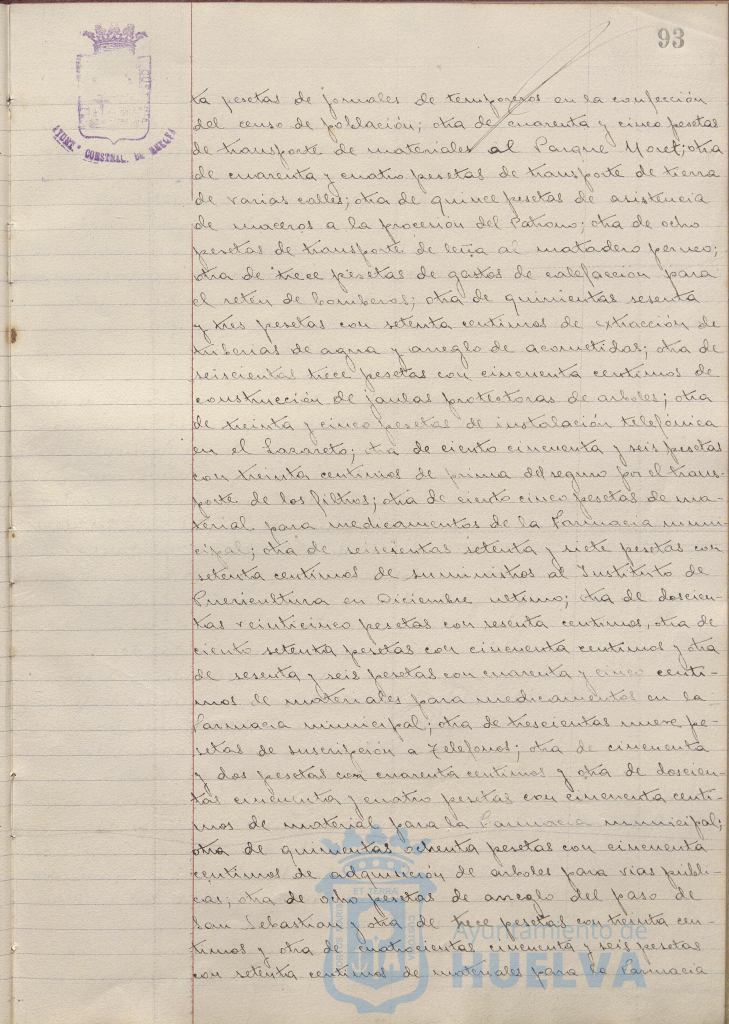 93
AYUNT. CONSTNAL. DE HUELVA
ta pesetas de jornales de temporeros en la confección
del censo de población; otra de cuarenta y cinco pesetas
de transporte de materiales al Parque Moret; otra
de cuarenta y cuatro pesetas de transporte de tierra
de varias calles; otra de quince pesetas de asistencia
de maceros a la procesión del Patrono; otra de ocho
pesetas de transporte de leña al matadero
otra de trece pesetas de gastos de calefacción para
el retén de bomberos; otra de quinientas sesenta
y tres pesetas con setenta centimos de extracción de
tuberias de agua y arreglo de acometidas; otra de
seiscientas trece pesetas con cincuenta centimos de
construcción de jaulas protectoras de arboles; otra
de treinta y cinco pesetas de instalación telefónica
en el Lazareto; otra de ciento cincuenta y seis pesetas
con treinta centimos de prima del seguro por el trans-
porte de los filtros; otra de ciento cinco pesetas de ma-
terial para medicamentos de la Farmacia muni-
cipal; otra de seiscientas setenta y siete pesetas con
setenta centimos de suministros al Instituto de
Puericultura en Diciembre ultimo; otra de doscien-
tas veinticinco pesetas con sesenta centimos, otra de
ciento setenta pesetas con cincuenta centimos y otra
de sesenta y seis pesetas con cuarenta y cinco centi-
mos de materiales para medicamentos en la
Farmacia municipal; otra de trescientas nueve pe-
setas de suscripción a Telefonos; otra de cincuenta
y dos pesetas con cuarenta centimos y otra de doscien-
tas cincuenta y cuatro pesetas con cincuenta centi-
mos de material para la Farmacia municipal;
otra de quinientas ochenta pesetas con cincuenta
centimos de adquisición de arboles para vias publi-
cas; otra de ocho pesetas de arreglo del paso de
San Sebastian y otra de trece pesetas con treinta cen-
timos y otra de cuatrocientas cincuenta y seis pesetas
con setenta centimos de materiales para la Farmacia
Ayuntamiento de
HUELVA